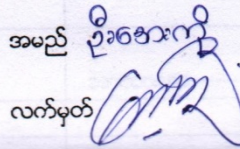 အမည် ဦးအေးကို
လက်မှတ်